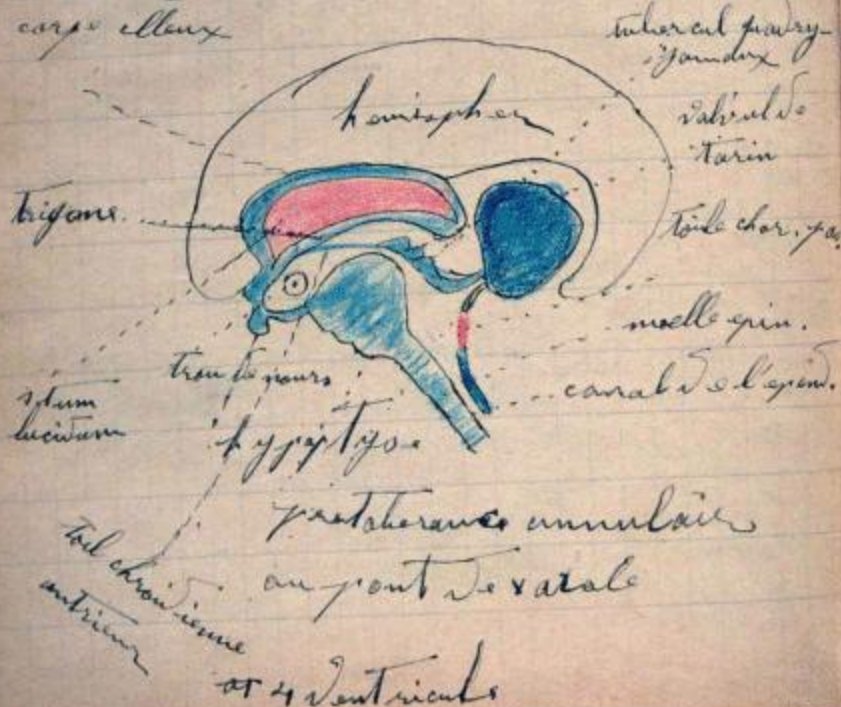 corps elleux
tubercul quadry-
jumaux
hemispher
valvul de
tarin
trigone
toile chor. pos
moelle epin.
trou de monro
canal de l'epend.
septum
lucidum
hypoptyse
protuberance annulaire
ou pont de varole
toil choroidienne
antrieur
4 Ventricule